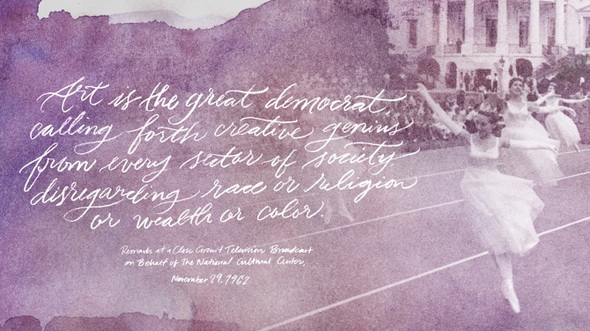 Art is the great democrat,
calling forth creative genius
from every sector of society
disregarding race or religion
or wealth or color.
Remarks at a Closed Circuit Television Broadcast
on Behalf of The National Cultural Center,
November 29, 1962